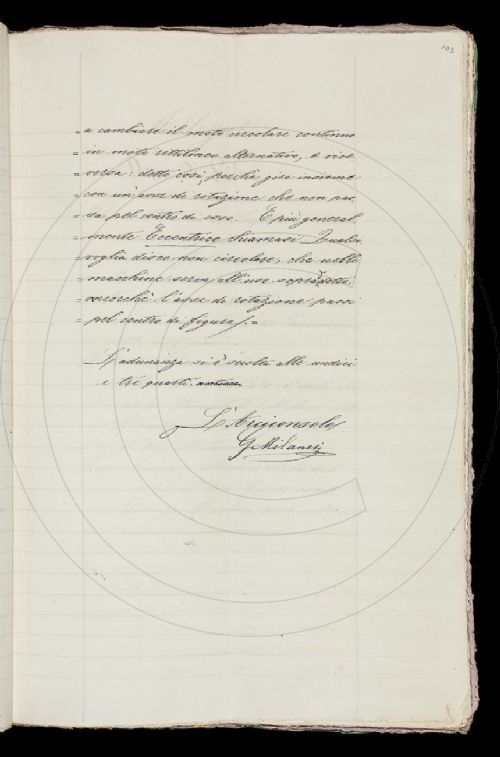 103
= a cambiare il moto circolare continuo
= in moto rettilineo alternativo, e vice
= versa: detto così, perchè gira insieme
= con un'asse di rotazione che non pas-
= sa pel centro di esso. E più general-
= mente Eccentrico chiamasi Qualsi-
= voglia disco non circolare, che nelle
= macchine serva all'uso sopradetto;
= ancorchè l'asse di rotazione passi
= pel centro di figura. =
L'adunanza si è sciolta alle undici
e tre quarti
L'Arciconsolo
G Milanesi